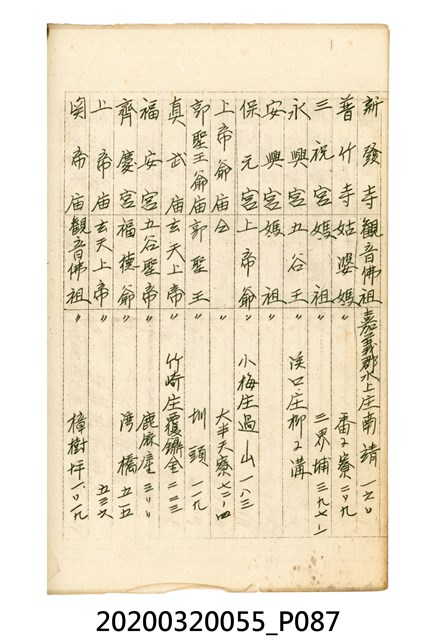 新發寺觀音佛祖嘉義郡水上庄南靖一六〇
普竹寺姑婆媽〃番子寮二〇九
三祝宮媽祖〃三界埔三九七ノ一
永興宮五谷王〃溪口庄柳子溝
安興宮媽祖〃
保元宮上帝爺〃小梅庄過山一八三
上帝爺庙仝〃大半天寮八七二ノ四
郭聖王爺庙郭聖王〃圳頭一一九
真武庙玄天上帝〃竹崎庄覆鼎金二二三
福安宮五谷聖帝〃鹿麻產三〇〇
齊慶宮福德爺〃灣橋五一五
上帝庙玄天上帝〃五三六
関帝庙観音佛祖〃樟樹坪一〇一九
20200320055_P087